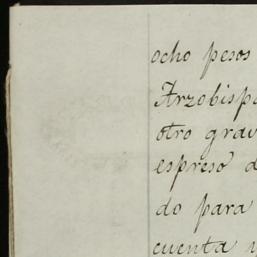 ocho pesos
Arzobispa
otro grav
espreso d
do para
cuenta